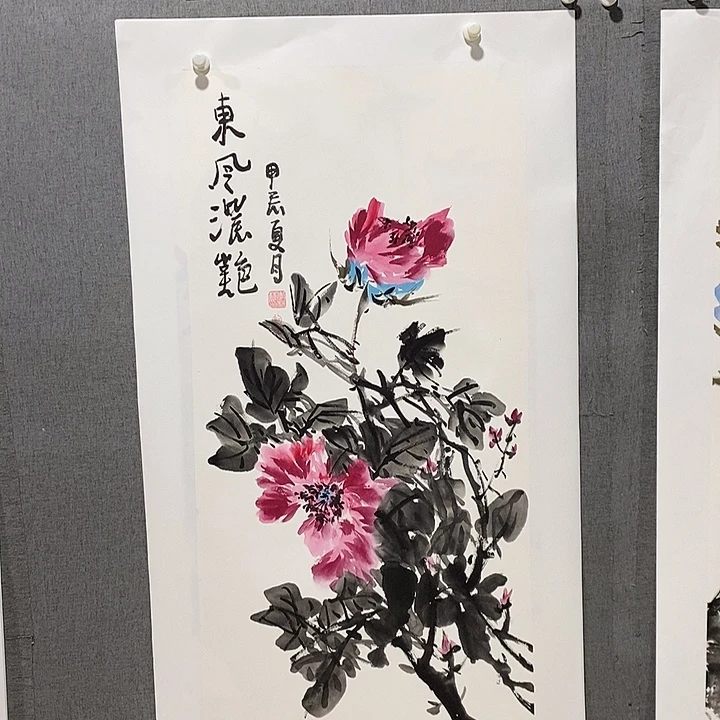 東風濃艷
甲辰夏月